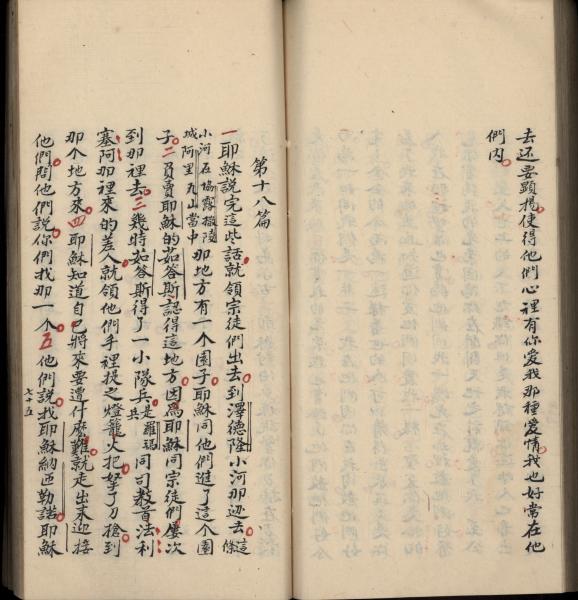 去还要顕揚使得他們心裡有你爱我那種爱情我也好常在他
們内
第十八篇
一耶穌説完這些話就領宗徒們出去到澤德隆小河那边去這條
小河在協露撒陵
城阿里瓦山當中
那地方有一个園子耶穌同他們進了這个園
子二員賣耶穌的茹答斯認得這地方因為耶穌同宗徒們屡次
到那裡去三幾時茹答斯得了一小隊兵是羅瑪兵同司教首法利
塞阿那裡來的差人就領他們手裡提之燈籠火把拏了刀槍到
那个地方來四耶穌知道自己將來要遭什麽難就走出来迎接
他們問他們説你們找那一个五他們説找耶穌納匝勒諾耶穌
七十五